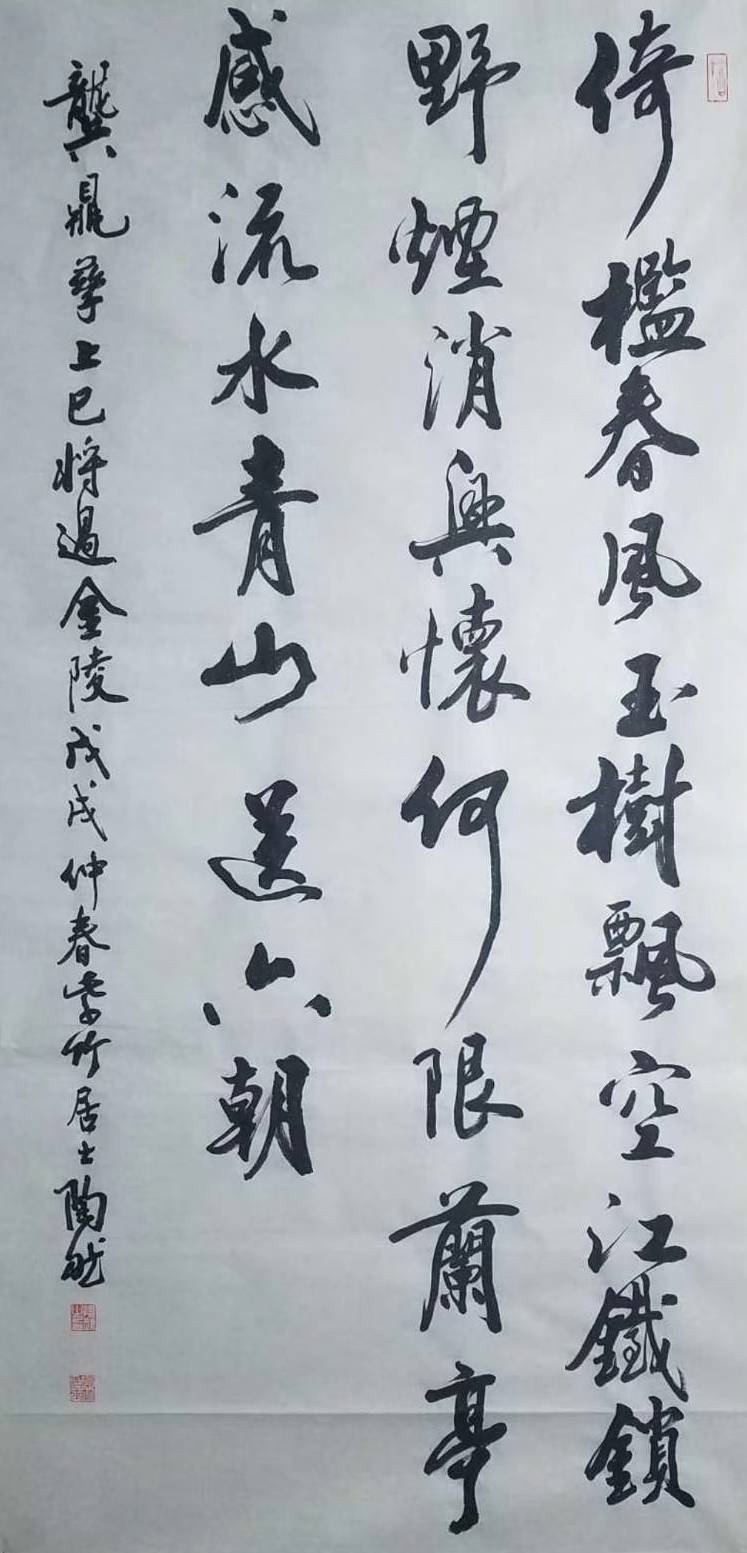 倚檻春風玉樹飄空江鐵鎖
野煙消興懷何限蘭亭
感流水青山送六朝
龔鼎孳上巳將過金陵戊戌仲春紫竹居士陶然